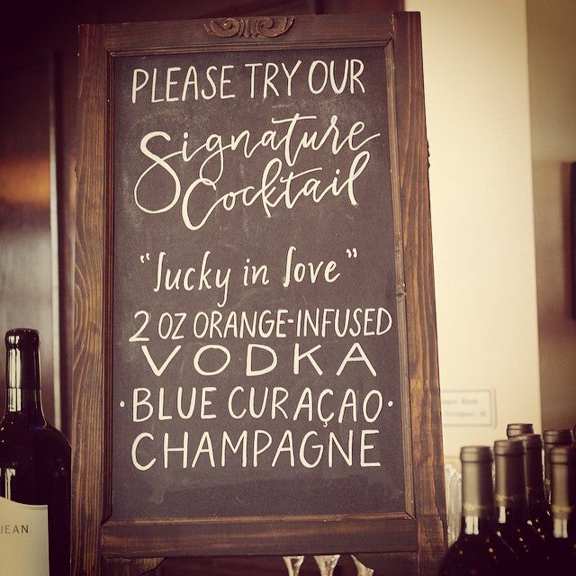 PLEASE TRY OUR
Signature
Cocktail
"lucky in love"
2 OZ ORANGE-INFUSED
VODKA
• BLUE CURAÇAO •
CHAMPAGNE
JEAN